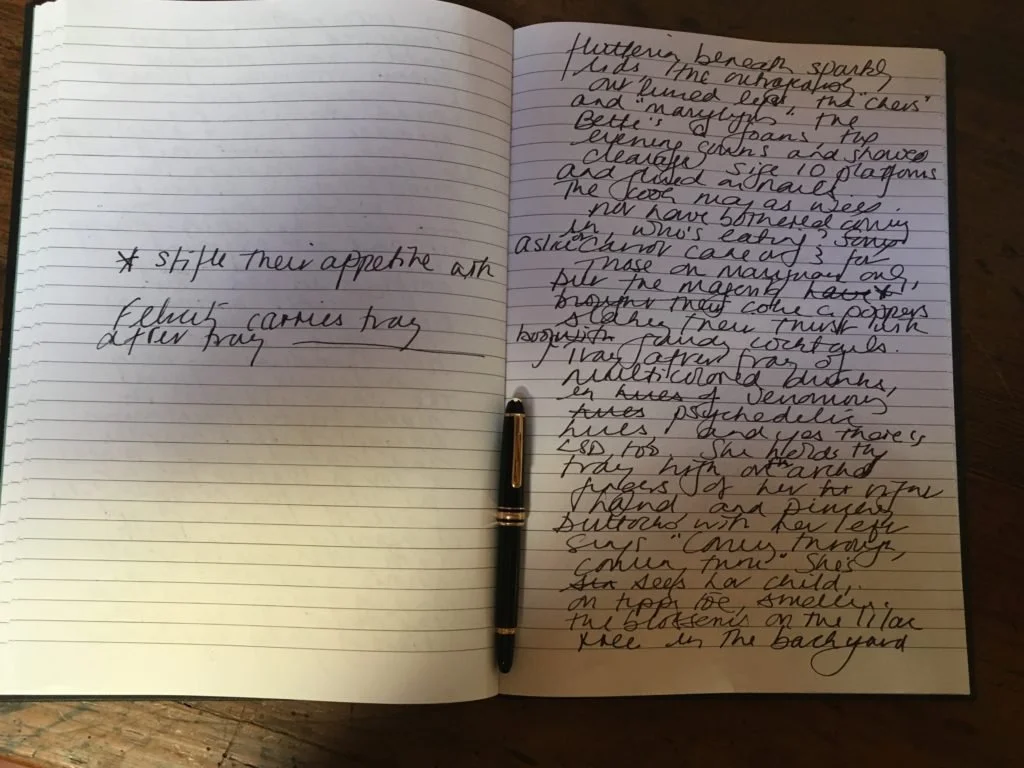 * stifle their appetite with
Felicity carries tray
after tray
fluttering beneath sparkly
lids the
out lined eyes, the "Chers"
and "Marylyns" the
Bette's of
evening gowns and showed
cleavage size 10 platforms
and nails
The cook may as well
not have bothered coming
in "who's eating" Sonya
asks
Those on marijuana only,
but the majority have
brought their coke & poppers
their thirst with
cocktails.
Tray after tray of
multicolored drinks,
in hues of venomous
hues psychedelic
hues and yes there is
LSD too. She holds the
tray high on the arched
fingers of her right
hand and pinches
buttocks with her left
says "Coming through,
coming through" She's
sees her child,
on tippy toe, smelling
the blossoms on the lilac
tree in the backyard